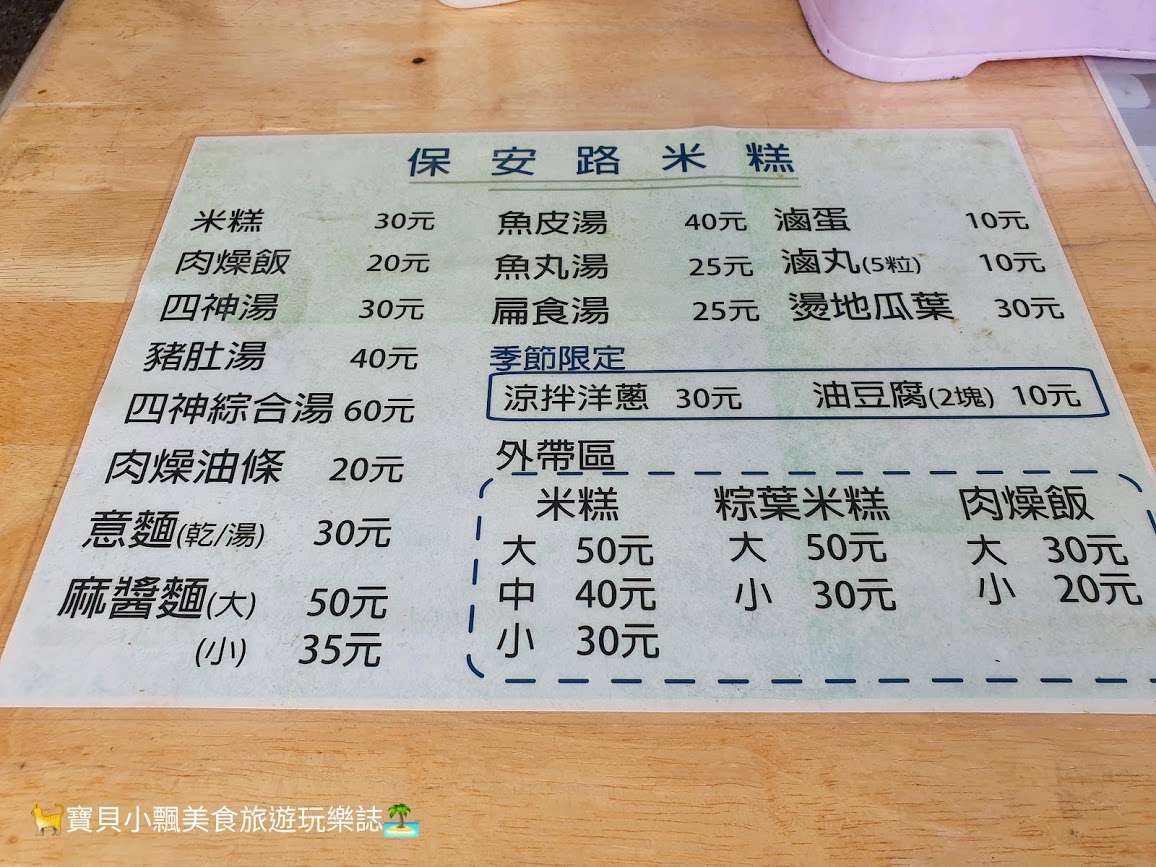 保安路米糕
米糕 30元
肉燥飯 20元
四神湯 30元
豬肚湯 40元
四神綜合湯 60元
肉燥油條 20元
意麵(乾/湯) 30元
麻醬麵(大) 50元
(小) 35元
魚皮湯 40元
魚丸湯 25元
扁食湯 25元
滷蛋 10元
滷丸(5粒) 10元
燙地瓜葉 30元
季節限定
涼拌洋蔥 30元 油豆腐(2塊) 10元
外帶區
米糕
大 50元
中 40元
小 30元
粽葉米糕
大 50元
小 30元
肉燥飯
大 30元
小 20元
寶貝小飄美食旅遊玩樂誌